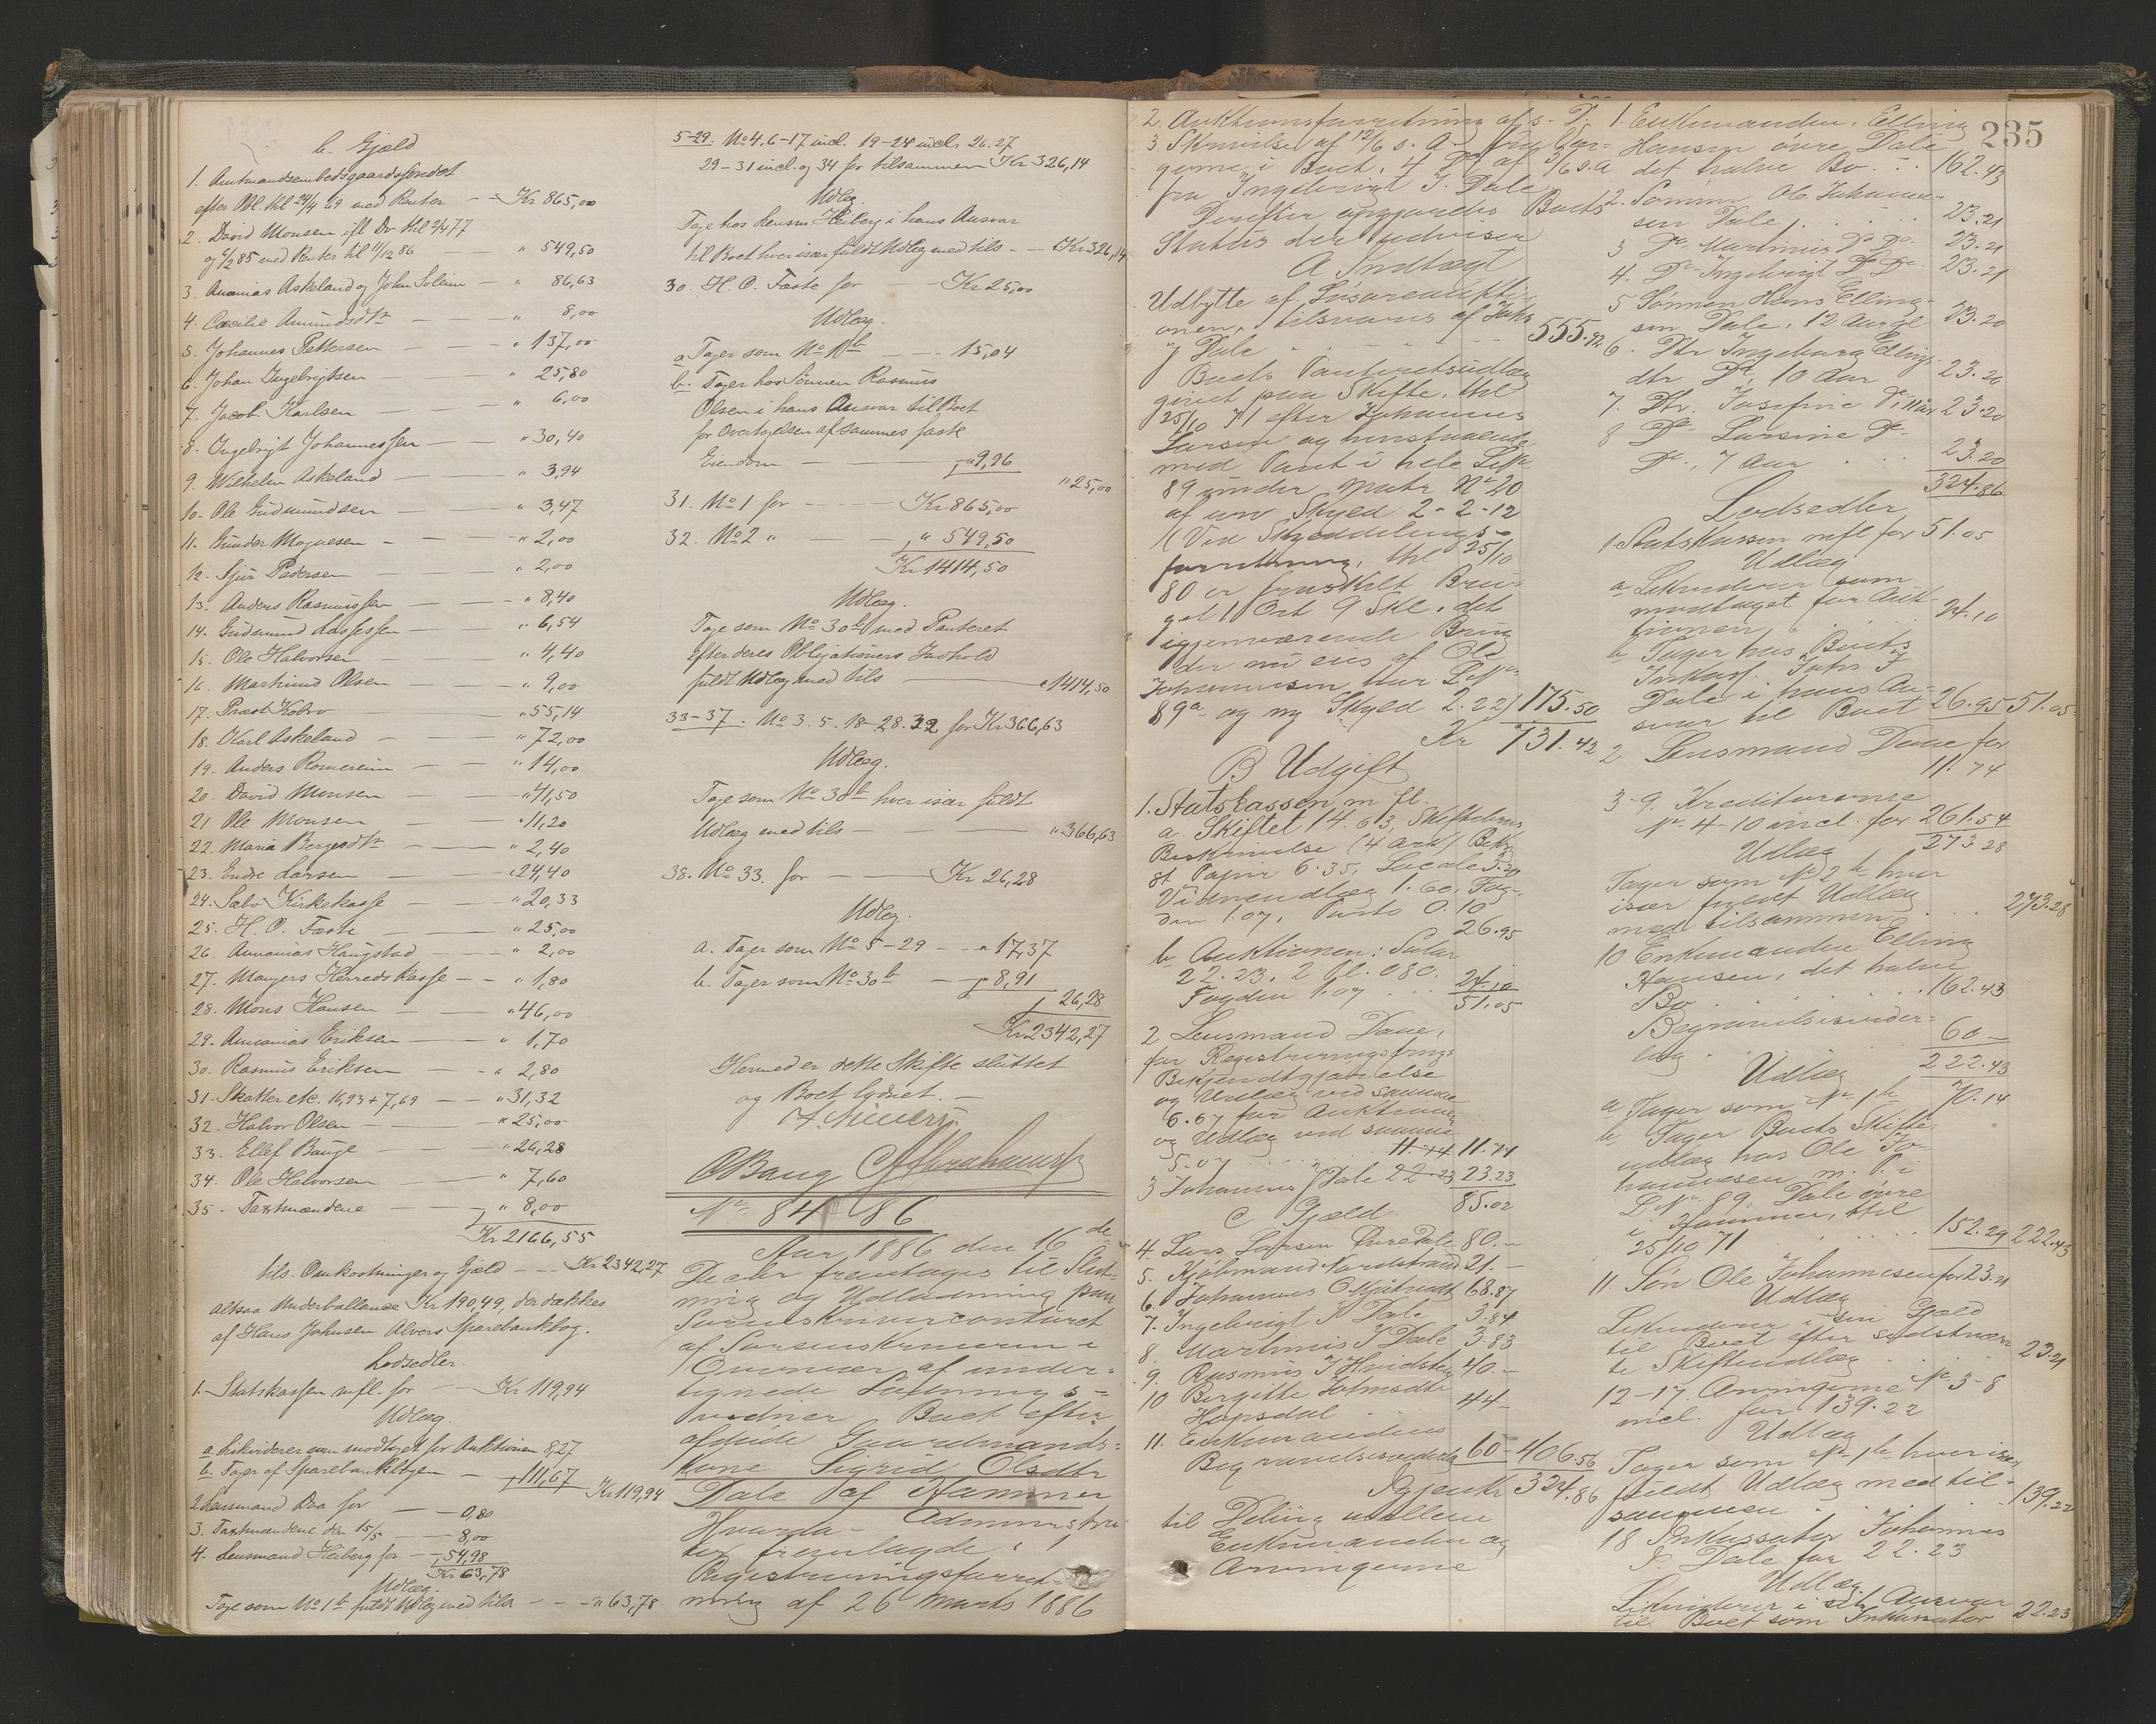 b. Gjæld
1. Amtmandsembedsgaardsfondet
efter Obl. thl 24/4 69 med Renter - - Kr 865,00
2. David Monsen ifl Dv thl 2/4 77
og 4/2 85 med Renter til 11/12 86 - " 549,50
3. Ananias Askeland og John Soleim - " 86,63
4. Cæcilie Amundsdtr - - " 8,00
5. Johannes Pettersen - - " 137,00
6. Johan Ingebrigtsen - " 25,80
7. Jacob Karlsen - - " 6,00
8. Ingebrigt Johannessen - " 30,40
9. Wilhelm Askeland - " 3,94
10. Ole Gudmundsen - " 3,47
11. Gunder Mognesen - " 2,00
12. Sjur Pedersen - " 2,00
13. Anders Rasmussen - - " 8,40
14. Gudmund Lassessen - " 6,54
15. Ole Halvorsen - - " 4,40
16. Martinus Olsen - " 9,00
17. Præst Kobro - - " 55,14
18. Karl Askeland - " 72,00
19. Anders Romereim - - " 14,00
20. David Monsen - - " 41,50
21 Ole Monsen - - " 11,20
22. Maria Bergesdtr - - " 2,40
23. Endre Larsen - - " 24,40
24. Sæbø Kirkekasse - " 20,33
25. H. O. Fæste - - " 25,00
26. Annanias Haugstad - " 2,00
27. Mangers Herredskasse - - " 1,80
28. Mons Hansen - - " 46,00
29. Annanias Eriksen - " 1,70
30. Rasmus Eriksen - - " 2,80
31. Skatter etc. 16,93 + 7,69 - - " 31,32
32. Halvor Olsen - - " 25,00
33. Ellef Bauge - - " 26,28
34. Ole Halvorsen - " 7,60
35. Taxtmændene - " 8,00
Kr 2166,55
tils. Omkostninger og Gjæld - - Kr 2342,27
altsaa Underballance Kr 190,49, der dækkes
af Hans Johnsen Alvers Sparebankbog.
Lodsedler.
1. Statskassen mfl. for - Kr 119,94
Udlæg.
a. Likviderer som modtaget for Auktionen 8,27
b. Tager af Sparebankbogen - " 111,67 Kr 119,94
2. Lensmand Daa for - - 0,80
3. Taxtmændene den 15/5 - 8,00
4. Lensmand Heiberg for - " 54,98
Kr 63,78
Udlæg.
Tage som No 1 b fuldt Udlæg med tils - - " 63,78
5-29. No 4. 6-17 incl. 19-24 incl. 26. 27
29-31 incl. og 34 for tilsammen Kr 326,14
Udlæg
Tage hos Lensm Heiberg i hans Ansvar
til Boet hver især fuldt Udlæg med tils - - Kr 326,14
30. H. O. Fæste for - Kr 25,00
Udlæg.
a Tager som No 1 b - - 15,04
b. Tager hos Sønnen Rasmus
Olsen i hans Ansvar til Boet
for Overtagelsen af sammes faste
Eiendom - " 9,96
" 25,00
31. No 1 for - - Kr 865,00
32. No 2 " - " 549,50
Kr 1414,50
Udlæg.
Tage som No 30 b med Panteret
efter deres Obligationers Indhold
fuldt Udlæg med tils - " 1414,50
33-37. No 3. 5. 18-28. 32 for Kr 366,63
Udlæg.
Tage som No 30 b hver især fuldt
Udlæg med tils - " 366,63
38. No 33. for - Kr 26,28
Udlæg.
a. Tager som No 5-29 - - " 17,37
b. Tager som No 30 b - " 8,91
" 26,28
Kr 2342,27
Hermed er dette Skifte sluttet
og Boet lydnet. -
O Bang
No 84 86
Aar 1886 den 16 de
Decbr fremtages til Slut-
ning og Udlodning paa
Sorenskrivercontoret
af Sorenskriveren i
Overvær af under-
tegnede Ladnings-
vidner Boet efter
afdøde Gaardmands-
kone Sigrid Olsdtr
Dale af Hammer
Hvorda - Administra
tor fremlagde, 1,
Registreringsforret-
ning af 26 Marts 1886
2. Auktionsforretning af s. D.
3 Skrivelse af 12/6 s. A. fra Vær-
gerne i Boet, 4 Do af 5/6 s. A
fra Ingebrigt J. Dale
Derefter opgjordes Boets
Status der udviser
A Indtægt
Udbytte af Løsøreaukti-
onen, tilsvares af Johs
J Dale - - - - 555.92
Boets Panteretsudlæg
givet paa Skifte, thl
25/10 71 efter Johannes
Larsen og henstaaende
med Pant i hele Løpe
89 under matr No 20
af urv Skyld 2-2-12
(Ved Skylddelings-
forretning, thl 25/10
80 er fraskilt Brug
get 1 Ort 9 Skl. det
igjenværende Brug
der nu eies af Ole
Johannesen har Løpe
89 a og ny Skyld 2.22) 175.50
Kr 731.42
B Udgift
1. Statskassen m fl.
a. Skiftet 14.63, Skiftebrevs
Beskrivelse (4 Ark) Bek,
st Papir 6.35, Locale 3.20
Vidneudlæg 1.60, Fog-
den 1.07, Porto 0.10
26.95
b. Auktionen: Salær
22.23, 2 Bl. 080.
Fogden 1.07 . . 24.10
51.05
2 Lensmand Dane,
for Registreringsforr.
Bekjendtgjørelse
og Udlæg ved samme
6.67 for Auktionen
og Udlæg ved samme
5.07 . . . 11.74 11.74
3 Johannes J Dale 22.23 23.23
85.02
C Gjæld.
4. Lars Larsen Øvre Dale 80.-
5. Kjøbmand Nordstrand 21.-
6. Johannes O Mjåtvedt 68.87
7. Ingebrigt J Dale 3.84
8. Martinus J Dale 3.83
9. Rasmus J Hvidsten 40.-
10 Birgitte Johnsdtr
Hopsdal 44-
11. Enkemandens
Begravelsesvederlag 60- 406.56
Igjen Kr 324.86
til Deling mellem
Enkemanden og
Arvingerne
235
1 Enkemanden, Elling
Hansen øvre Dale
det halve Bo . . 162.43
2. Sønnen Ole Johannes-
sen Dale . . . . 23.21
3 Do Martinus Do Do 23.21
4. Do Ingebrigt Do Do 23.21
5 Sønnen Hans Elling-
sen Dale, 12 Aar gl 23.20
6. Dtr Ingeborg Ellings-
dtr Do, 10 Aar 23.20
7. Dtr. Josefine Do, 11 Aar 23.20
8 Do Larsine Do
Do, 7 Aar 23.20
324.86
Lodsedler
1. Statskassen mfl for 51.05
Udlæg
a Likviderer som
modtaget for Auk-
tionen . . 24.10
b Tager hos Boets
Inkass. Johs J
Dale i hans An-
svar til Boet 26.95 51.05
2 Lensmand Dane for
11.74
3-9. Kreditorerne
No 4-10 incl. for 261.54
273.28
Udlæg
Tager som No 1 b hver
især fuldt Udlæg
med tilsammen . . . 273.28
10 Enkemanden Elling
Hansen, det halve
Bo . . . . . 162.43
Begravelsesveder-
lag . . 60-
222.43
Udlæg
a Tager som No 1 b 70.14
b Tager Boets Skifte
udlæg hos Ole Jo-
hannesen m. P. i
LNo 89, Dale øvre
i Hammer, thl
25/10 71 . . 152.29 222.43
11. Søn Ole Johannesen for 23.21
Udlæg
Likviderer i sin Gjæld
til Boet efter sidstnævn
te Skifteudlæg . . 23.21
12-17 Arvingerne No 3-8
incl. for 139.22
Udlæg
Tager som No 1 b hver især
fuldt Udlæg med til-
sammen . . . . 139.22
18 Inkassator Johannes
J. Dale for 22.23
Udlæg
Likviderer i sit Ansvar
til Boet som Inkassator 22.23